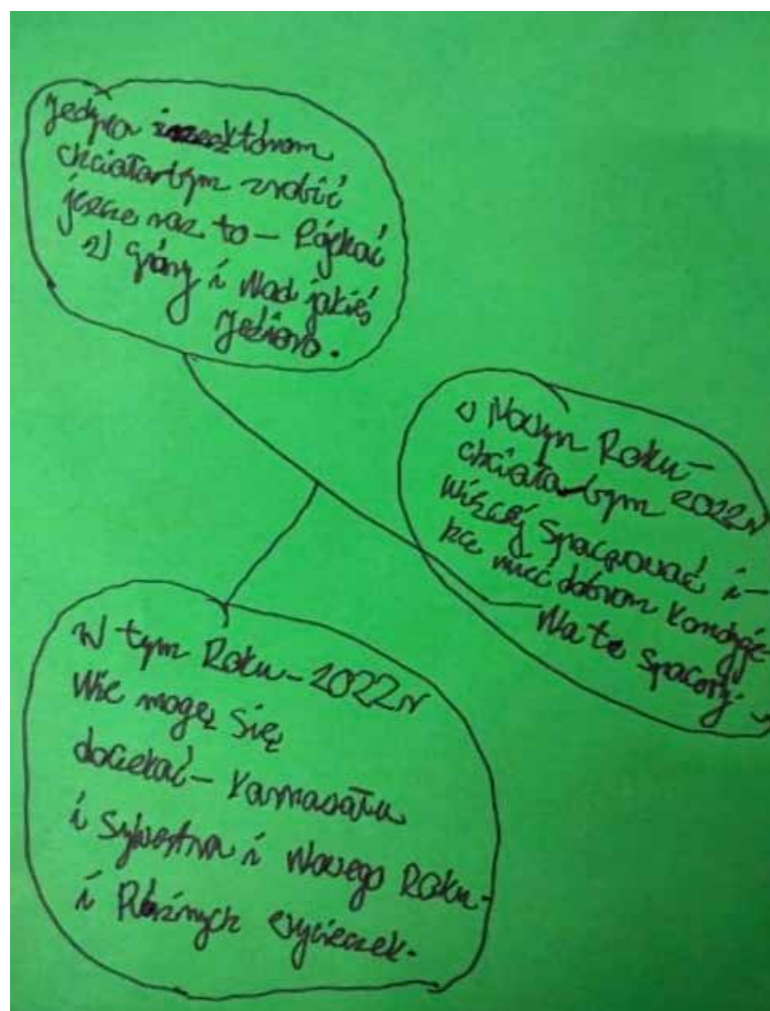 Jedyna którom
chciałabym zrobić
jeszcze raz to –
W góry i Nad jakieś
Jezioro.
w Nowym Roku –
chciałabym 2022r
więcej spacerować i –
mieć dobrom kondycje
Na te spacery.
W tym Roku – 2022r
Nie mogę się
doczekać – Karnawału
i Sylwestra i Nowego Roku.
i Różnych wycieczek.